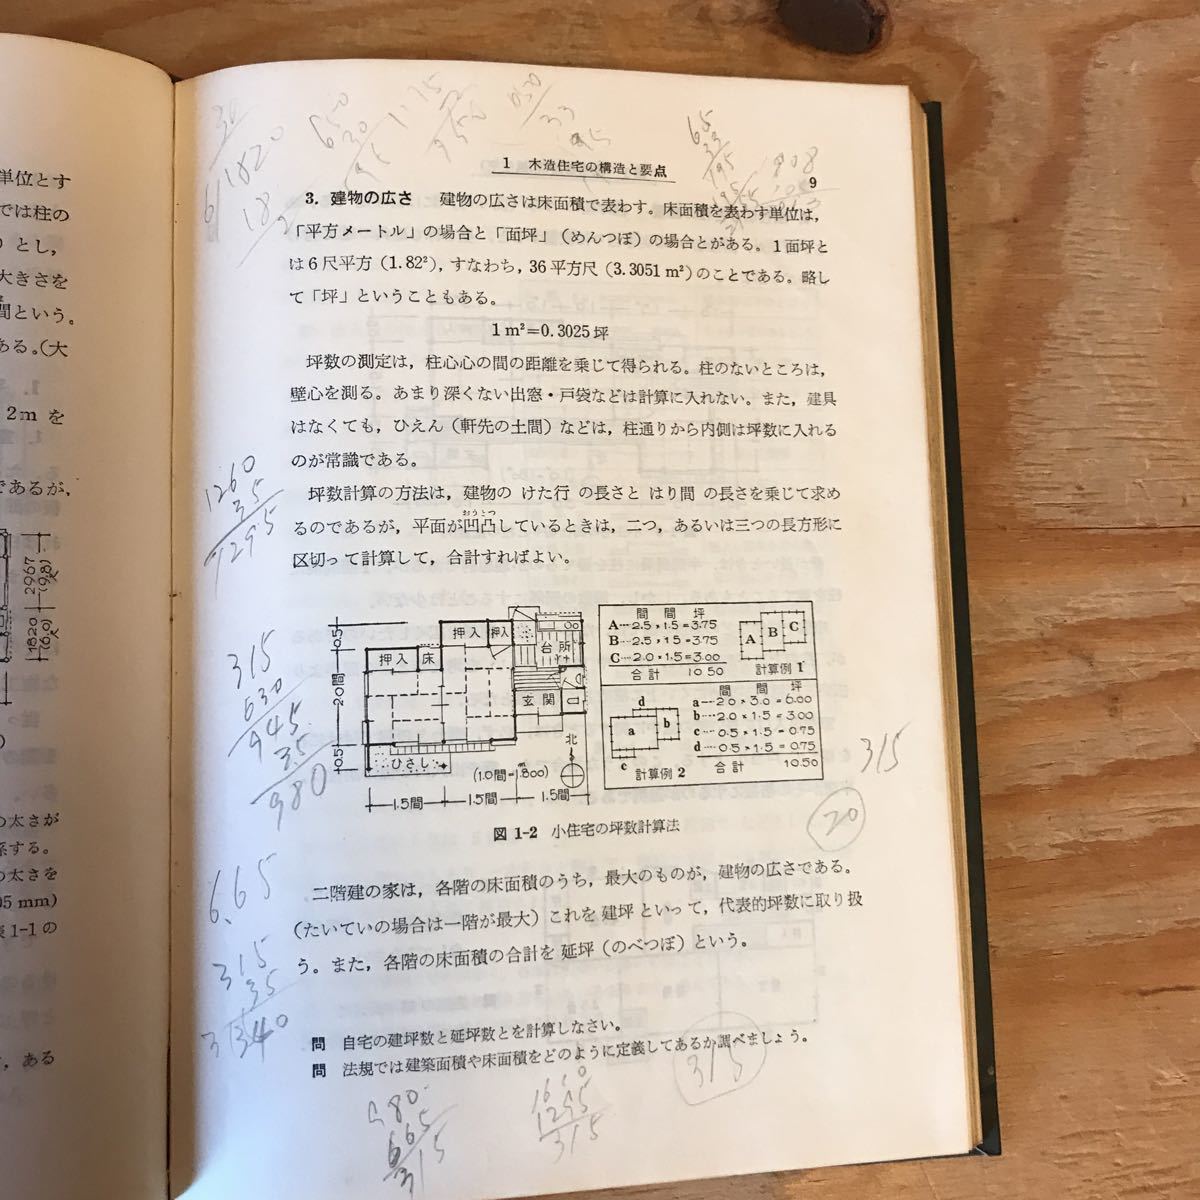 単位とす
では柱の
）とし，
大きさを
間という。
ある。（大
2mを
であるが，
2967
(9.8)尺
1820
(6.0)尺
の太さが
係する。
の太さを
05 mm)
表1-1の
，ある
1 木造住宅の構造と要点
9
3. 建物の広さ 建物の広さは床面積で表わす。床面積を表わす単位は，
「平方メートル」の場合と「面坪」（めんつぼ）の場合とがある。1面坪と
は6尺平方（1.82²），すなわち，36平方尺（3.3051 m²）のことである。略し
て「坪」ということもある。
1 m²=0.3025坪
坪数の測定は，柱心心の間の距離を乗じて得られる。柱のないところは，
壁心を測る。あまり深くない出窓・戸袋などは計算に入れない。また，建具
はなくても，ひえん（軒先の土間）などは，柱通りから内側は坪数に入れる
のが常識である。
坪数計算の方法は，建物の けた行 の長さと はり間 の長さを乗じて求め
おうとつ
るのであるが，平面が凹凸しているときは，二つ，あるいは三つの長方形に
区切って計算して，合計すればよい。
0.5
2.0間
0.5
押入
床
押入
押入
台所
玄関
ひさし
北
(1.0間=1.800)
m
1.5間
1.5間
1.5間
間 間 坪
A…2.5×1.5=3.75
B…2.5×1.5=3.75
C…2.0×1.5=3.00
合計 10.50
A
B
C
計算例1
間 間 坪
a…2.0×3.0=6.00
b…2.0×1.5=3.00
c…0.5×1.5=0.75
d…0.5×1.5=0.75
合計 10.50
d
a
b
c
計算例2
図 1-2 小住宅の坪数計算法
二階建の家は，各階の床面積のうち，最大のものが，建物の広さである。
（たいていの場合は一階が最大）これを 建坪 といって，代表的坪数に取り扱
う。また，各階の床面積の合計を 延坪（のべつぼ）という。
問 自宅の建坪数と延坪数とを計算しなさい。
問 法規では建築面積や床面積をどのように定義してあるか調べましょう。
30
1820
650
30
195
1260
35
1295
315
630
945
35
980
6.65
315
35
315
20
315
980
665
315
1295
315